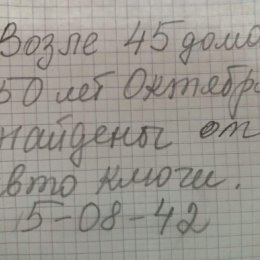 Возле 45 дома
50 лет Октябр
найдены от
вто ключи.
5-08-42